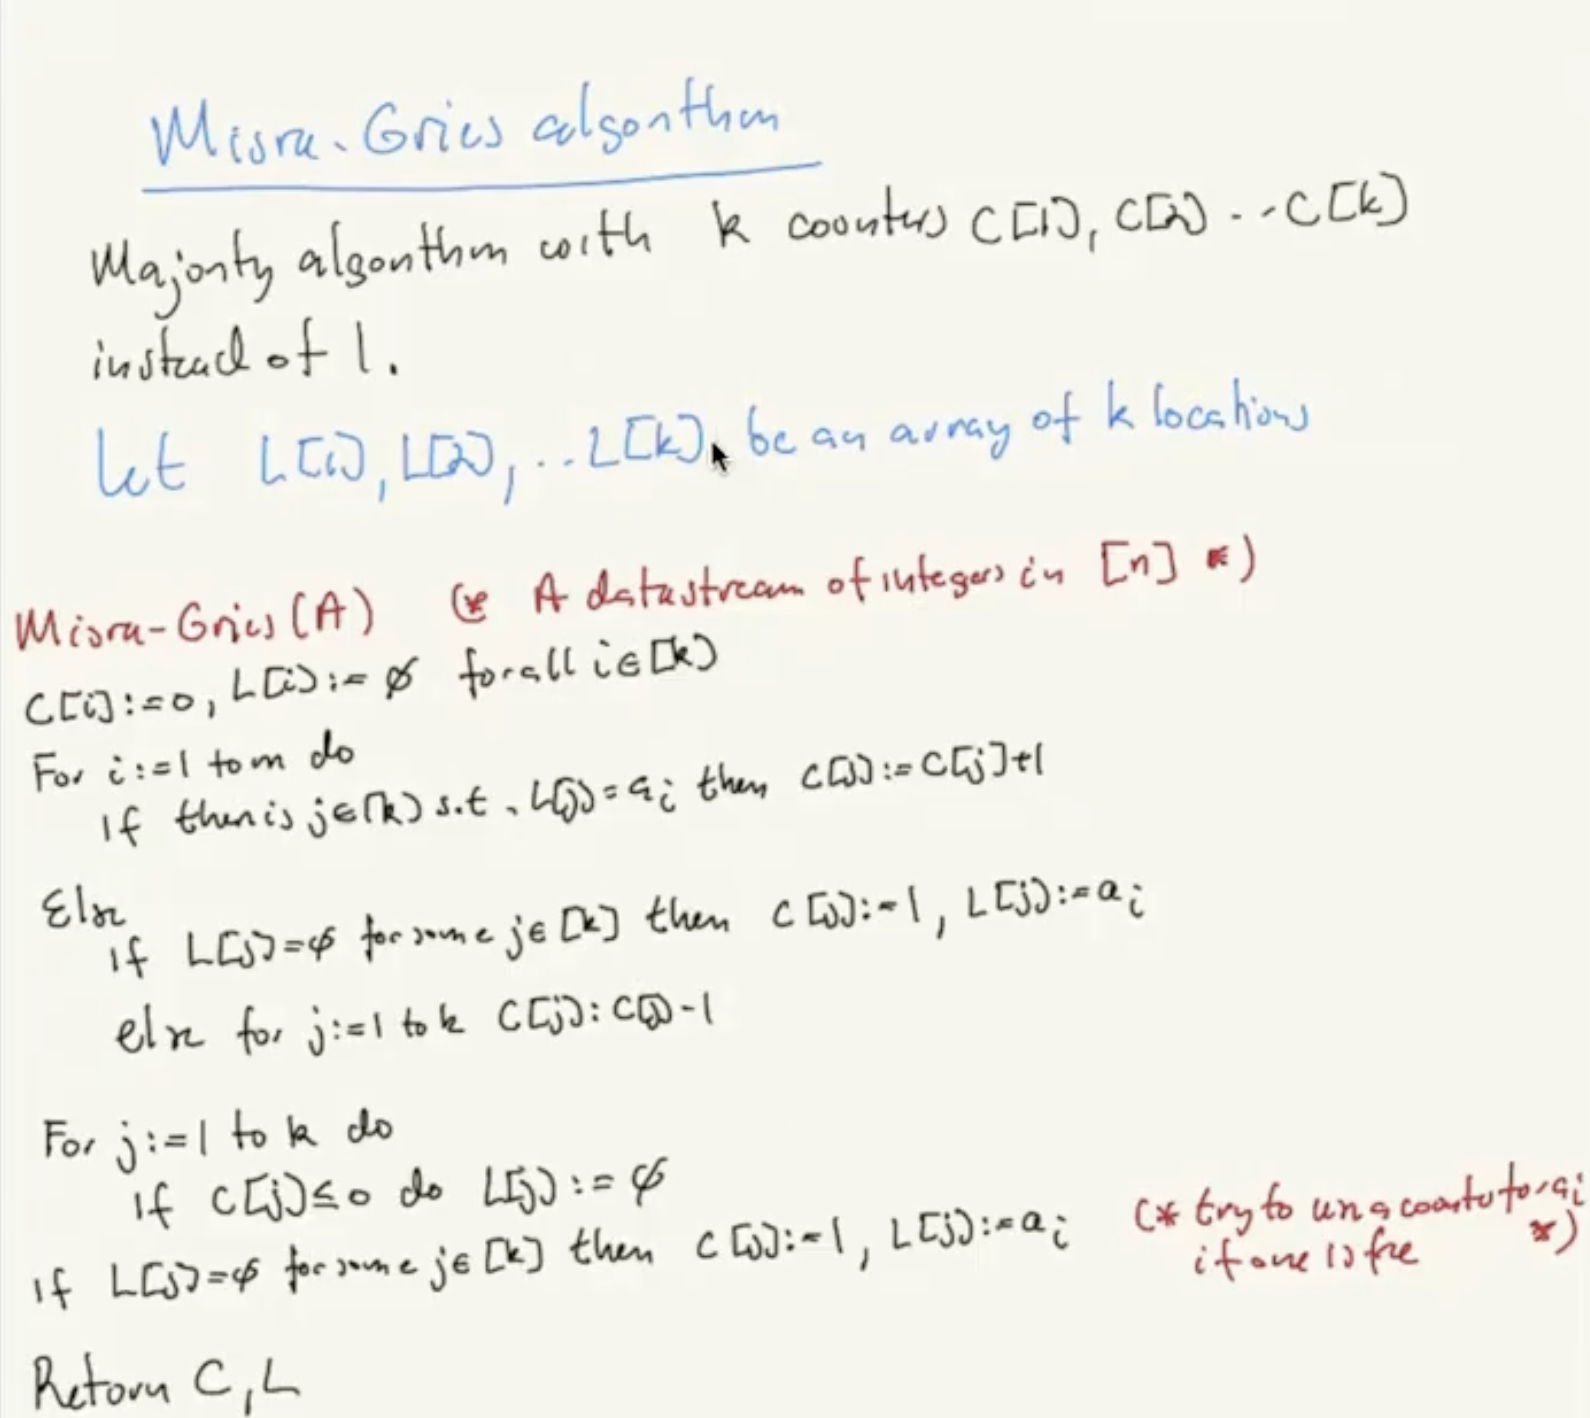 Misra-Gries algorithm
Majority algorithm with k counters C[1], C[2] ... C[k]
instead of 1.
Let L[1], L[2], ... L[k], be an array of k locations
Misra-Gries (A) (* A datastream of integers in [n] *)
C[i]:=0, L[i]:=ϕ for all i∈[k]
For i:=1 to m do
If there is j∈[k] s.t. L[j]=ai then C[j]:=C[j]+1
Else
If L[j]=ϕ for some j∈[k] then C[j]:=1, L[j]:=ai
else for j:=1 to k C[j]:C[j]-1
For j:=1 to k do
If C[j]≤0 do L[j]:=ϕ
(* try to use a counter for ai
If L[j]=ϕ for some j∈[k] then C[j]:=1, L[j]:=ai
if one is free *)
Return C, L